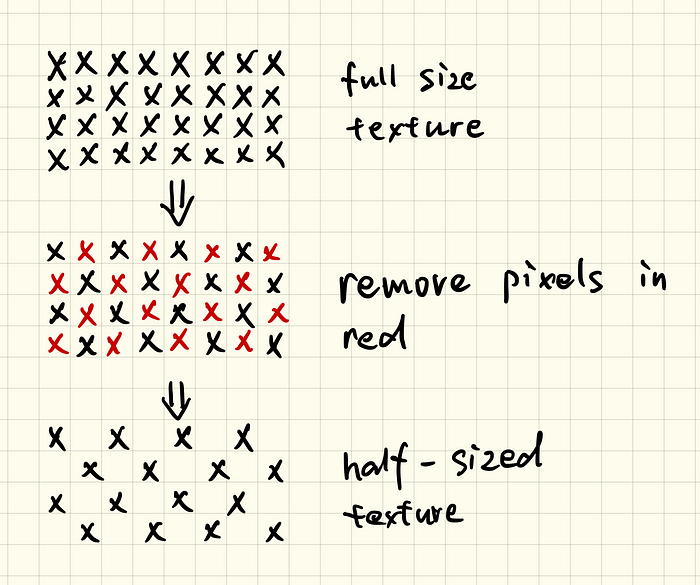 X X X X X X X X
X X X X X X X X
X X X X X X X X
X X X X X X X X
full size
texture
X X X X X X X X
X X X X X X X X
X X X X X X X X
X X X X X X X X
remove pixels in
red
X X X X
X X X X
X X X X
X X X X
half-sized
texture